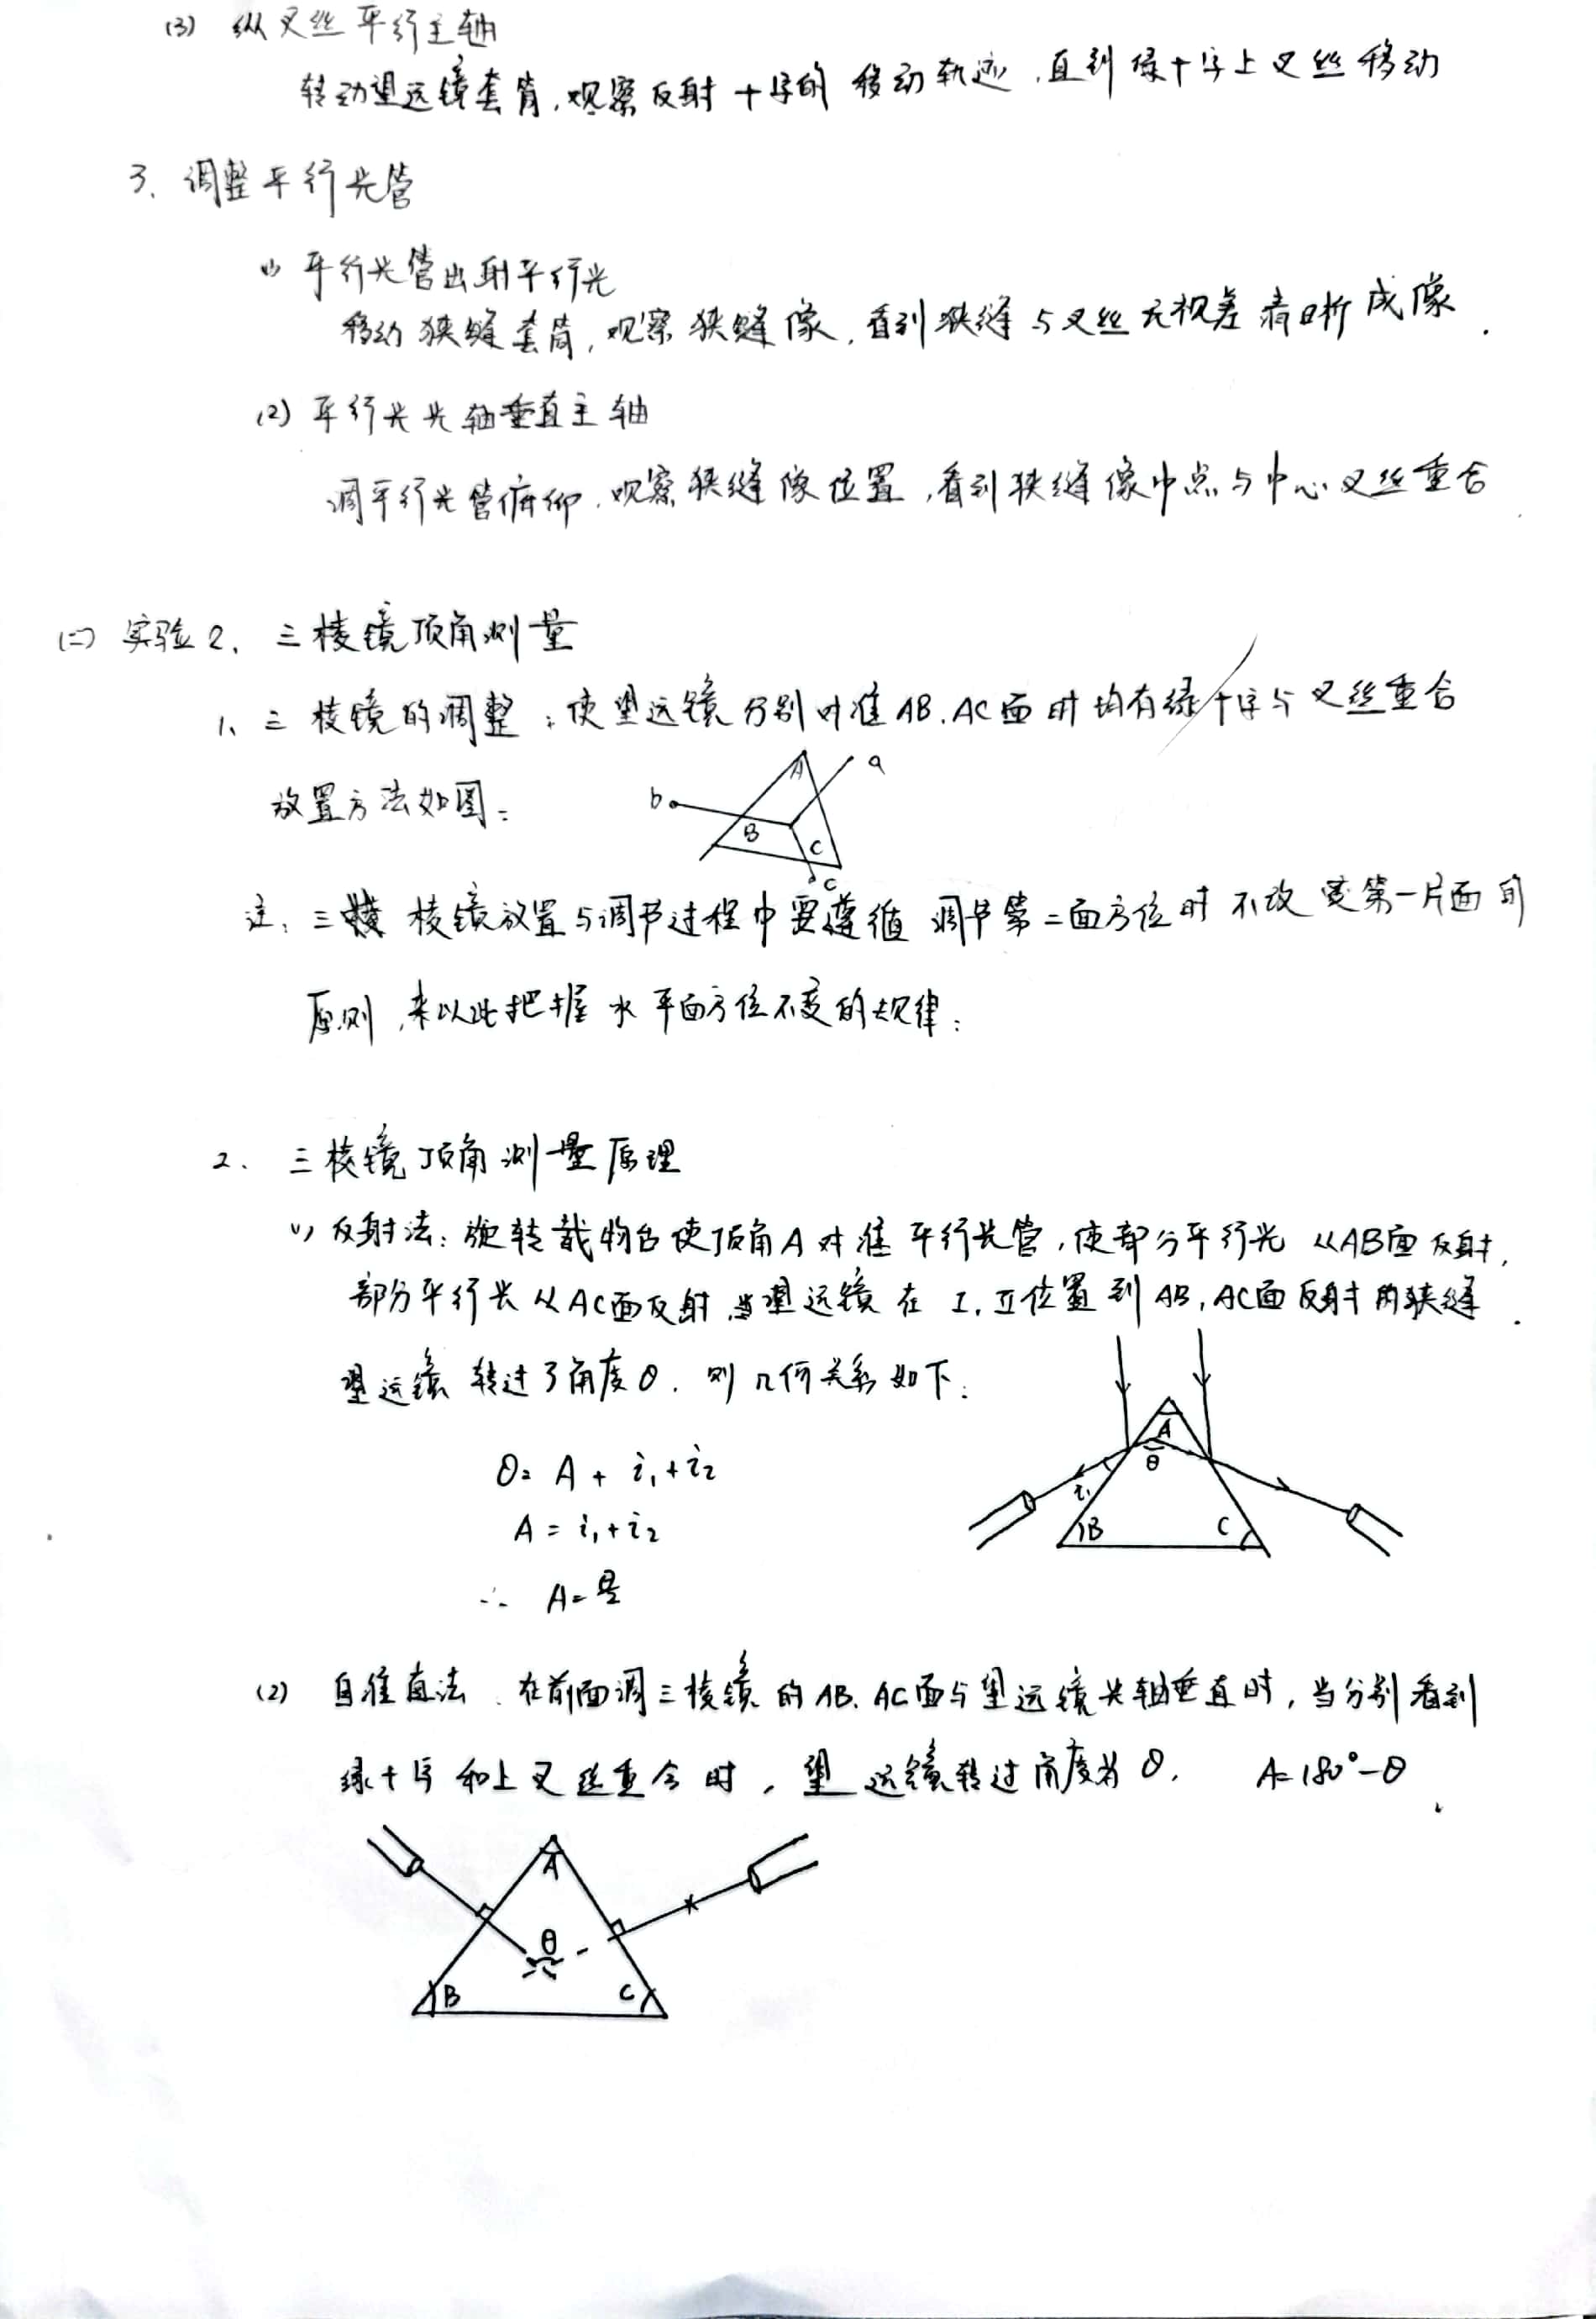 (3) 纵叉丝平行主轴
转动望远镜套筒,观察反射十字的移动轨迹,直到绿十字上叉丝移动
3、调整平行光管
(1) 平行光管出射平行光
移动狭缝套筒,观察狭缝像,看到狭缝与叉丝无视差清晰成像.
(2) 平行光光轴垂直主轴
调平行光管俯仰,观察狭缝像位置,看到狭缝像中点与中心叉丝重合.
(二) 实验2、三棱镜顶角测量
1、三棱镜的调整:使望远镜分别对准AB、AC面时均有绿十字与叉丝重合
放置方法如图:
A a
b B C
c
注:三棱镜放置与调节过程中要遵循 调节第二面方位时不改变第一片面的
原则,来以此把握水平面方位不变的规律:
2、三棱镜顶角测量原理
(1) 反射法:旋转载物台使顶角A对准平行光管,使部分平行光从AB面反射,
部分平行光从AC面反射,当望远镜在I、II位置到AB,AC面反射的狭缝.
望远镜转过了角度θ,则几何关系如下:
θ= A + i₁+i₂
A = i₁+i₂
∴ A=θ/2
A
θ
i₁
B C
(2) 自准直法、在前面调三棱镜的AB、AC面与望远镜光轴垂直时,当分别看到
绿十字和上叉丝重合时,望远镜转过角度为θ, A=180°-θ
A
θ
B C